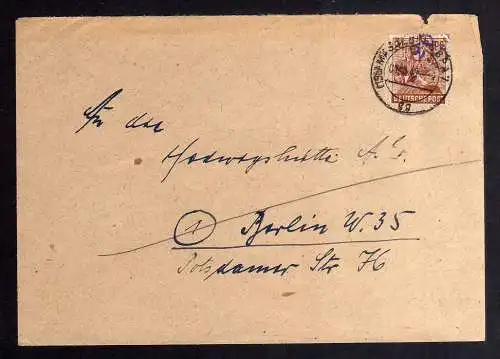 DEUTSCHE POST
An die
Hedwigshütte A.G.
1 Berlin W. 35
Potsdamer Str 76